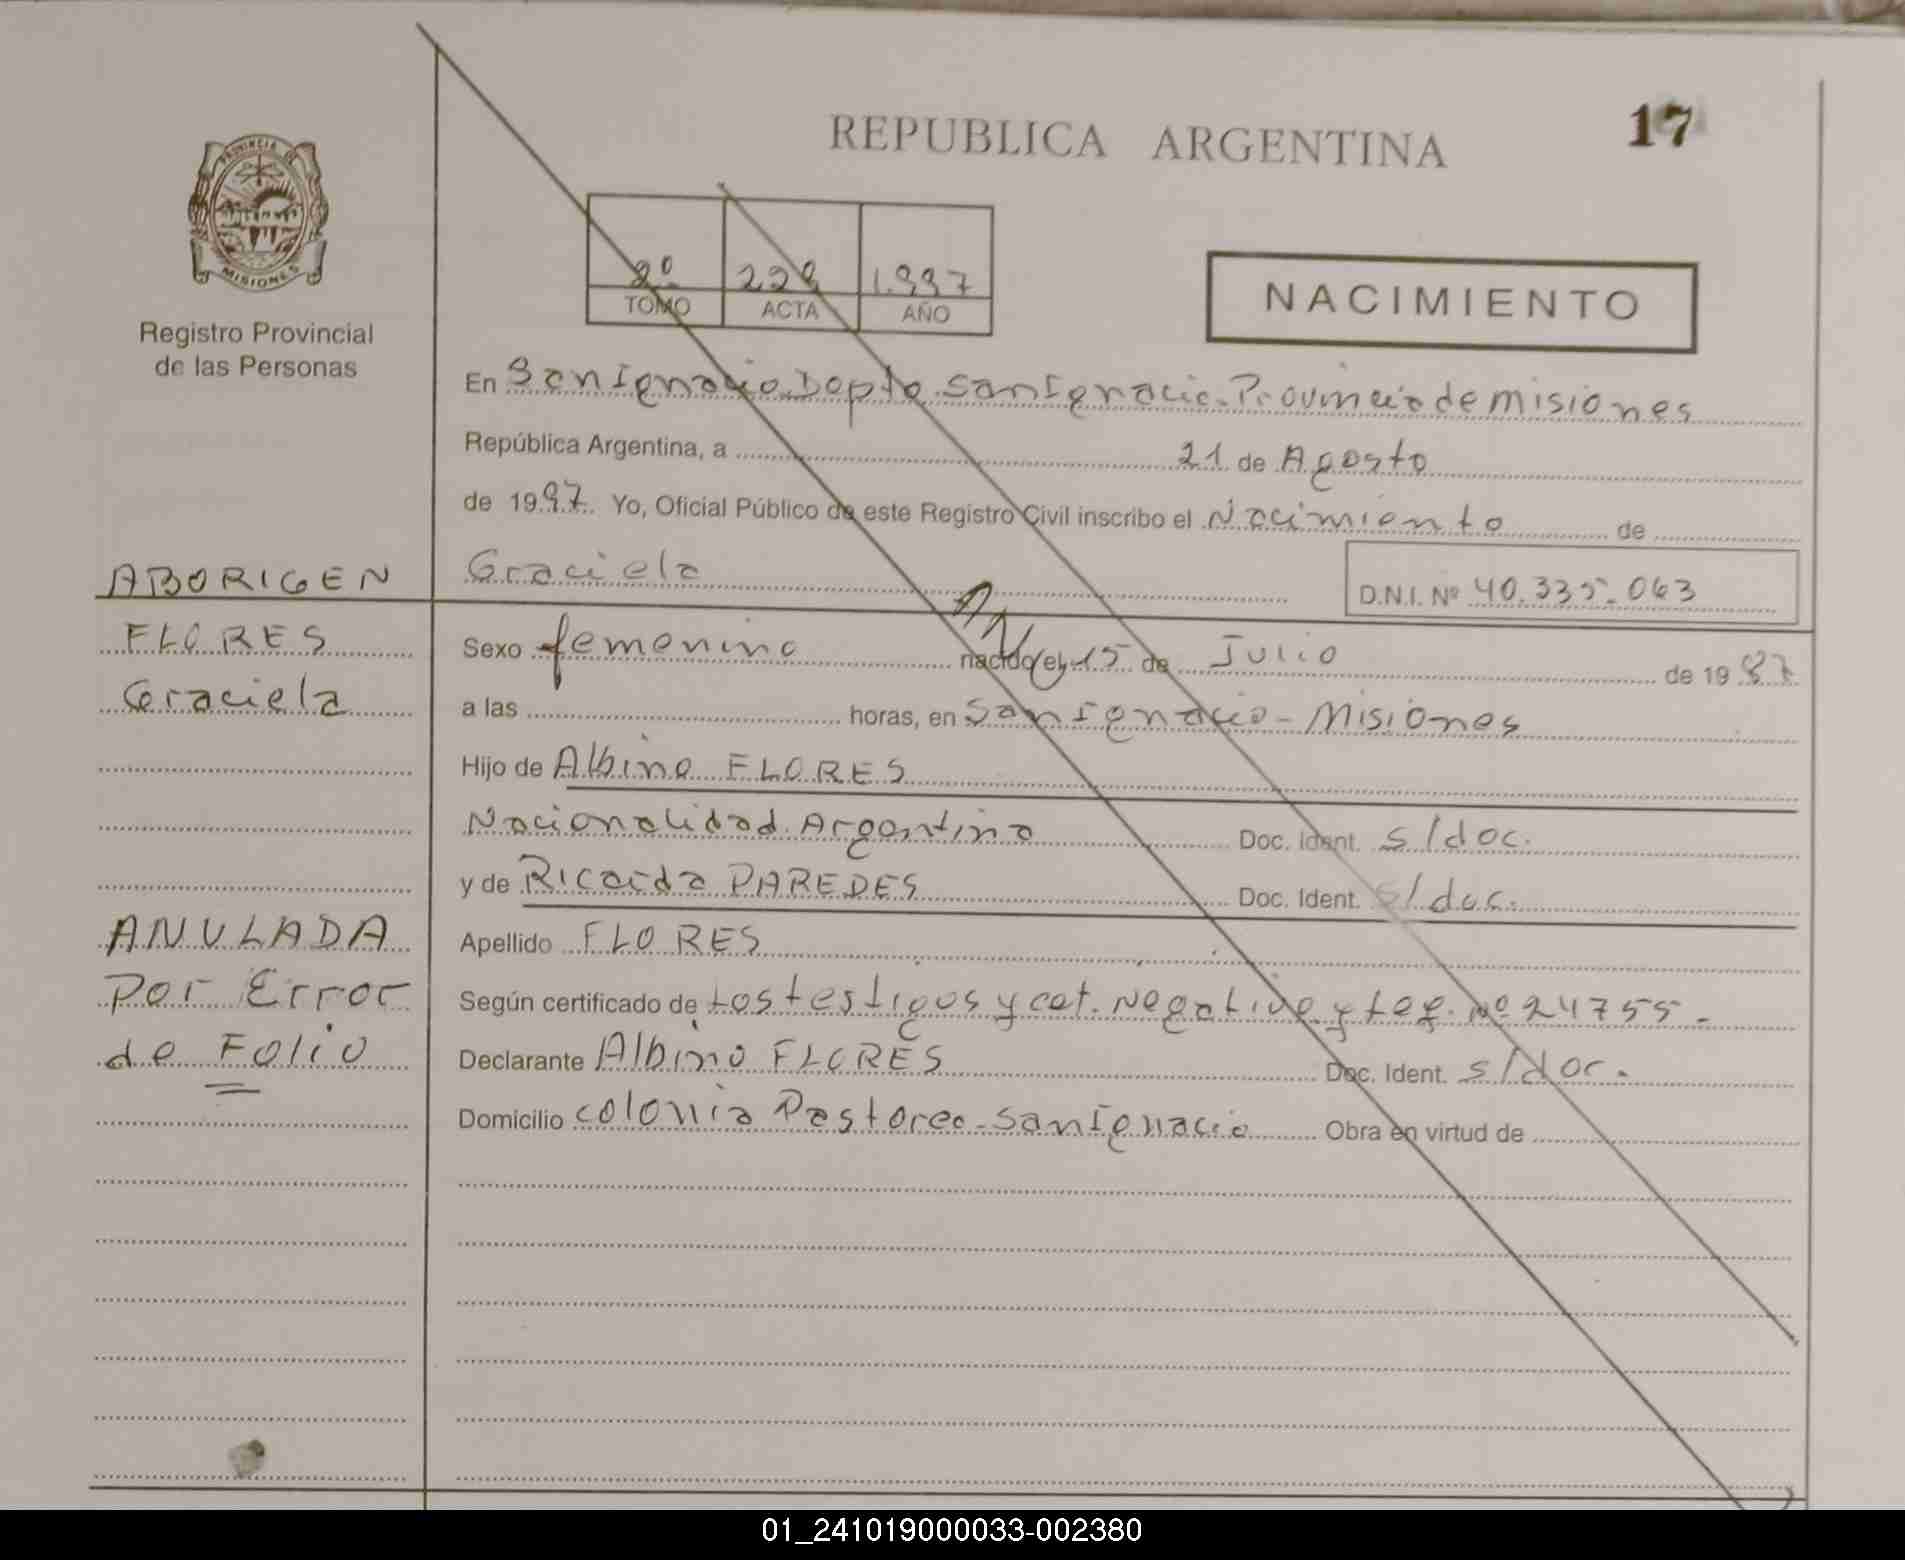 REPUBLICA ARGENTINA
17
PROVINCIA DE
MISIONES
Registro Provincial
de las Personas
2º 228 1.997
TOMO ACTA AÑO
NACIMIENTO
En San Ignacio. Depto. San Ignacio. Provincia de misiones
República Argentina, a 21 de Agosto
de 1997. Yo, Oficial Público de este Registro Civil inscribo el Nacimiento de
Graciela
D.N.I. Nº 40.335.063
ABORIGEN
FLORES
Graciela
ANULADA
Por Error
de Folio
Sexo femenino nacido el 15 de Julio de 1987
a las horas, en San Ignacio - Misiones
Hijo de Albino FLORES
Nacionalidad. Argentina Doc. Ident. s/doc.
y de Ricarda PAREDES Doc. Ident. s/doc.
Apellido FLORES
Según certificado de Los testigos y cet. Negativo y Leg. Nº 24755.-
Declarante Albino FLORES Doc. Ident. s/doc.
Domicilio colonia Pastoreo - San Ignacio Obra en virtud de
01_241019000033-002380